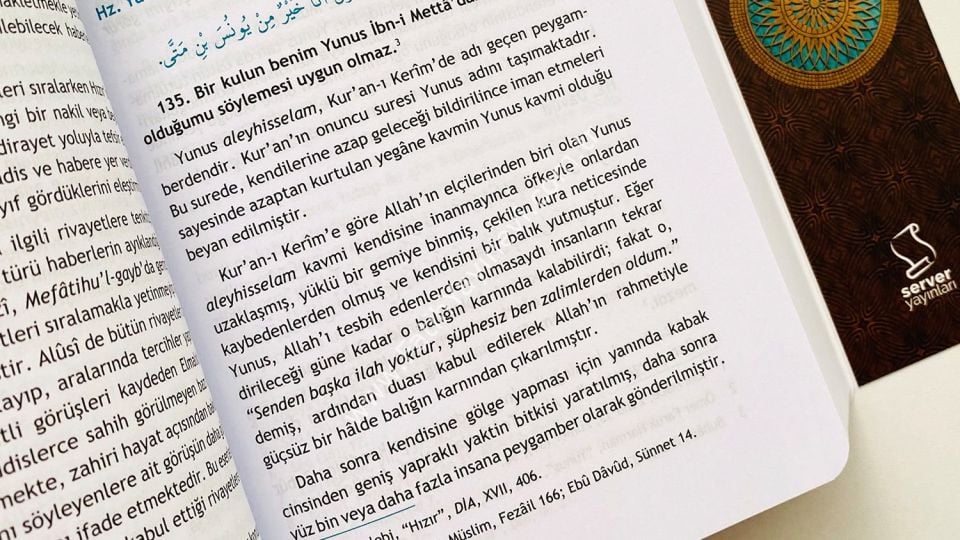 naklетmekle
bilecek
eri sıralarken
ngi bir nakil veya
dirayet yoluyla
dis ve habere yer
yıf gördüklerini
ilgili rivayetlere
türü haberlerin
Mefâtihu'l-gayb'da
tleri sıralamakla yetinme
tir. Alûsî de bütün rivaye
layıp, aralarında tercihler
tli görüşleri kaydeden
dislerce sahih görülmeyen
mekte, zahiri hayat açısından
nı söyleyenlere ait görüşün daha
ı ifade etmektedir. Bu
kabul ettiği
Hz.
خَيْرٌ مِنْ يُونُسَ بْنِ مَتَّى.
135. Bir kulun benim Yunus İbn-i Mettâ'da
olduğumu söylemesi uygun olmaz.3
Yunus aleyhisselam, Kur'an-ı Kerîm'de adı geçen peygam-
berdendir. Kur'an'ın onuncu suresi Yunus adını taşımaktadır.
Bu surede, kendilerine azap geleceği bildirilince iman etmeleri
sayesinde azaptan kurtulan yegâne kavmin Yunus kavmi olduğu
beyan edilmiştir.
Kur'an-ı Kerîm'e göre Allah'ın elçilerinden biri olan Yunus
aleyhisselam kavmi kendisine inanmayınca öfkeyle onlardan
uzaklaşmış, yüklü bir gemiye binmiş, çekilen kura neticesinde
kaybedenlerden olmuş ve kendisini bir balık yutmuştur. Eğer
Yunus, Allah'ı tesbih edenlerden olmasaydı insanların tekrar
dirileceği güne kadar o balığın karnında kalabilirdi; fakat o,
"Senden başka ilah yoktur, şüphesiz ben zalimlerden oldum."
demiş, ardından duası kabul edilerek Allah'ın rahmetiyle
güçsüz bir hâlde balığın karnından çıkarılmıştır.
Daha sonra kendisine gölge yapması için yanında kabak
cinsinden geniş yapraklı yaktin bitkisi yaratılmış, daha sonra
yüz bin veya daha fazla insana peygamber olarak gönderilmiştir.
"Hızır", DİA, XVII, 406.
Müslim, Fezâil 166; Ebû Dâvûd, Sünnet 14.
server
yayınları